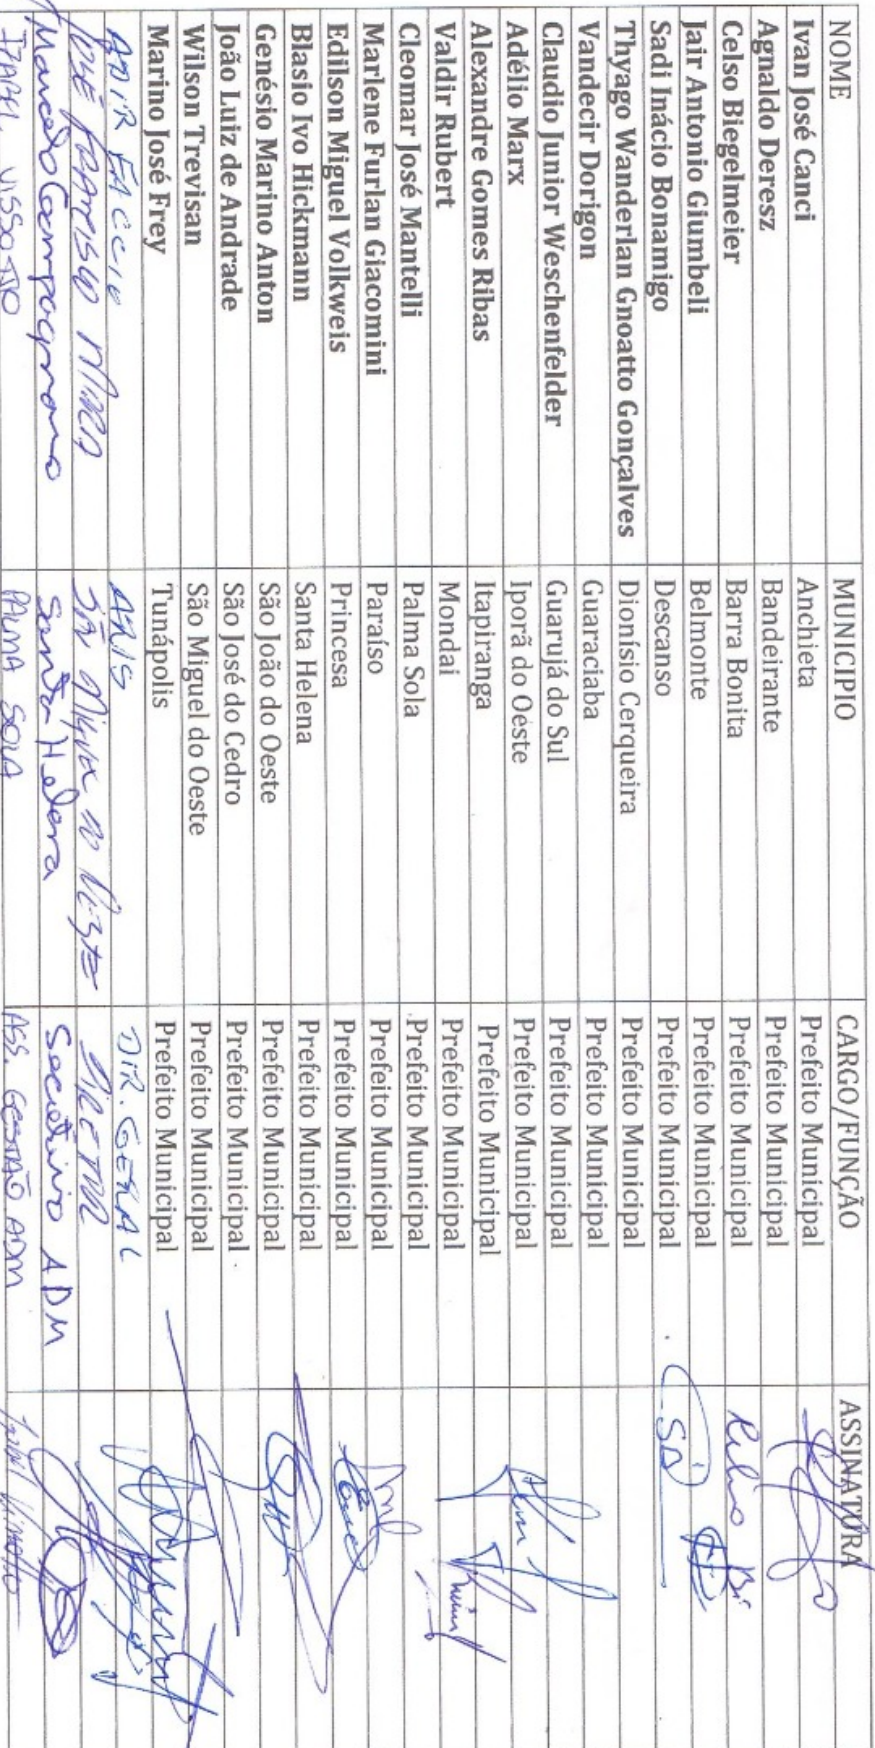 NOME MUNICIPIO CARGO/FUNÇÃO ASSINATURA
Ivan José Canci Anchieta Prefeito Municipal
Agnaldo Deresz Bandeirante Prefeito Municipal
Celso Biegelmeier Barra Bonita Prefeito Municipal
Jair Antonio Giumbeli Belmonte Prefeito Municipal
Sadi Inácio Bonamigo Descanso Prefeito Municipal
Thyago Wanderlan Gnoatto Gonçalves Dionísio Cerqueira Prefeito Municipal
Vandecir Dorigon Guaraciaba Prefeito Municipal
Claudio Junior Weschenfelder Guarujá do Sul Prefeito Municipal
Adélio Marx Iporã do Oeste Prefeito Municipal
Alexandre Gomes Ribas Itapiranga Prefeito Municipal
Valdir Rubert Mondai Prefeito Municipal
Cleomar José Mantelli Palma Sola Prefeito Municipal
Marlene Furlan Giacomini Paraíso Prefeito Municipal
Edilson Miguel Volkweis Princesa Prefeito Municipal
Blasio Ivo Hickmann Santa Helena Prefeito Municipal
Genésio Marino Anton São João do Oeste Prefeito Municipal
João Luiz de Andrade São José do Cedro Prefeito Municipal
Wilson Trevisan São Miguel do Oeste Prefeito Municipal
Marino José Frey Tunápolis Prefeito Municipal
ADIR FACCIO ARIS DIR. GERAL
JOSÉ DIRETOR
Marcelo Santa Helena Secretário ADM
IZABEL VISSOTTO PALMA SOLA ASS. GESTÃO ADM